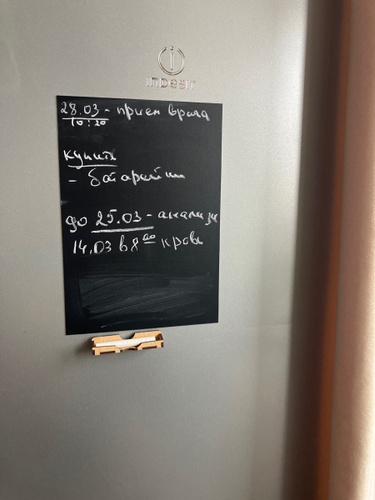 indesit
28.03 - прием врача
10:20
купить
- батарейки
до 25.03 - анализы
14.03 в 8 00 кровь